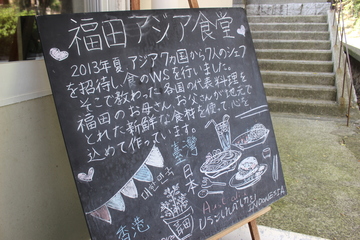 福田アジア食堂
2013年夏、アジア7ヵ国から7人のシェフ
を招待し、食のWSを行いました。
そこで教わった各国の代表料理を
福田のお母さん、お父さんが地元で
とれた新鮮な食材を使って心を
込めて作っています。
臺灣
대한민국
日本
香港
福田
INDONESIA